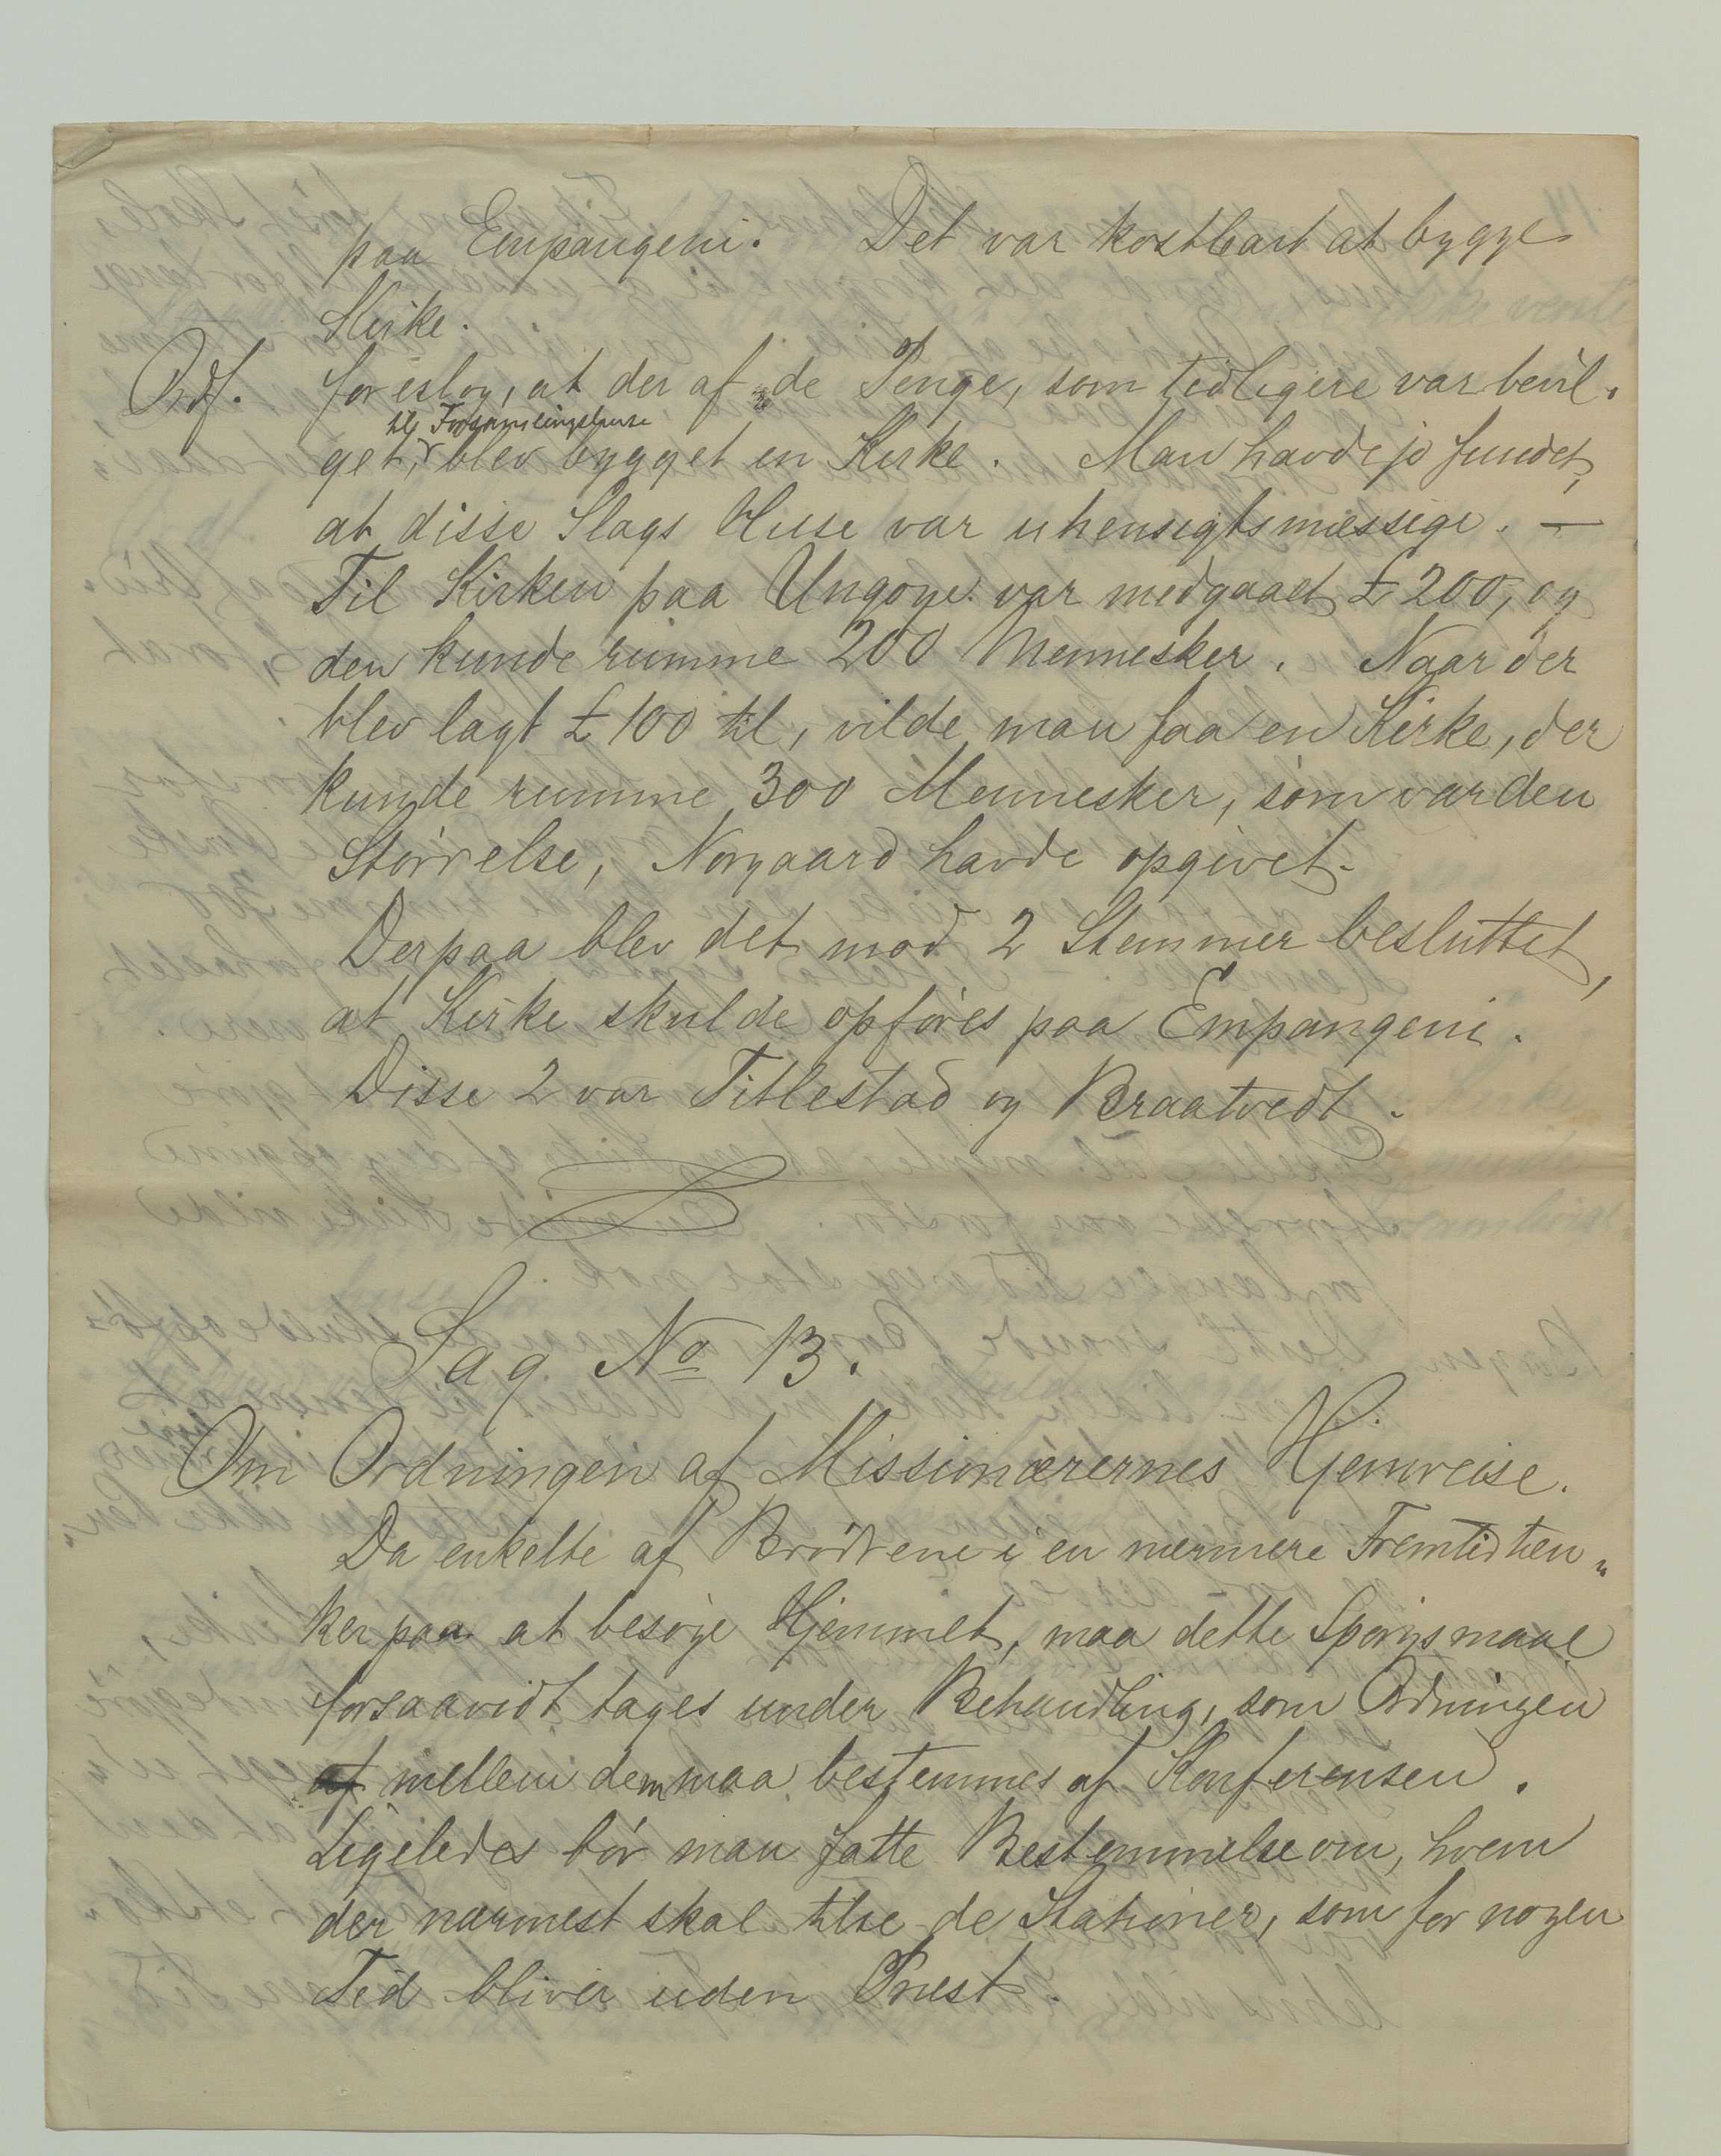 paa Empangeni. Det var kostbart at bygge
Kirke.
Ordf. foreslog, at der af de Penge, som tidligere var bevil-
til Forsamlingshuse
get, blev bygget en Kirke. Man havde jo fundet,
at disse Slags Huse var uhensigtsmæssige. —
Til Kirken paa Ungoye var medgaaet £ 200, og
den kunde rumme 200 Mennesker. Naar der
blev lagt £ 100 til, vilde man faa en Kirke, der
kunde rumme 300 Mennesker, som var den
Størrelse, Norgaard havde opgivet.
Derpaa blev det mod 2 Stemmer besluttet,
at Kirke skulde opføres paa Empangeni.
Disse 2 var Titlestad og Braatvedt.
Sag No 13.
Om Ordningen af Missionærernes Hjemreise.
Da enkelte af Brødrene i en nærmere Fremtid tæn„
ker paa at besøge Hjemmet, maa dette Spørgsmaal
forsaavidt tages under Behandling, som Ordningen
af mellem dem maa bestemmes af Konferensen.
Ligeledes bør man fatte Bestemmelse om, hvem
der nærmest skal tilse de Stationer, som for nogen
Tid bliver uden Præst.